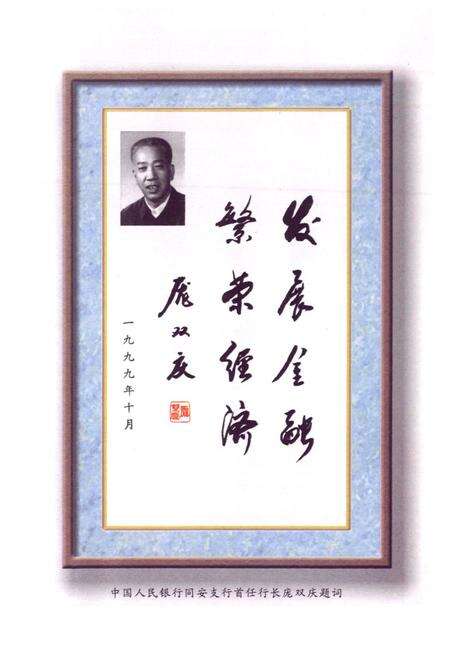 发展金融
繁荣经济
庞双庆
一九九九年十月
中国人民银行同安支行首任行长庞双庆题词